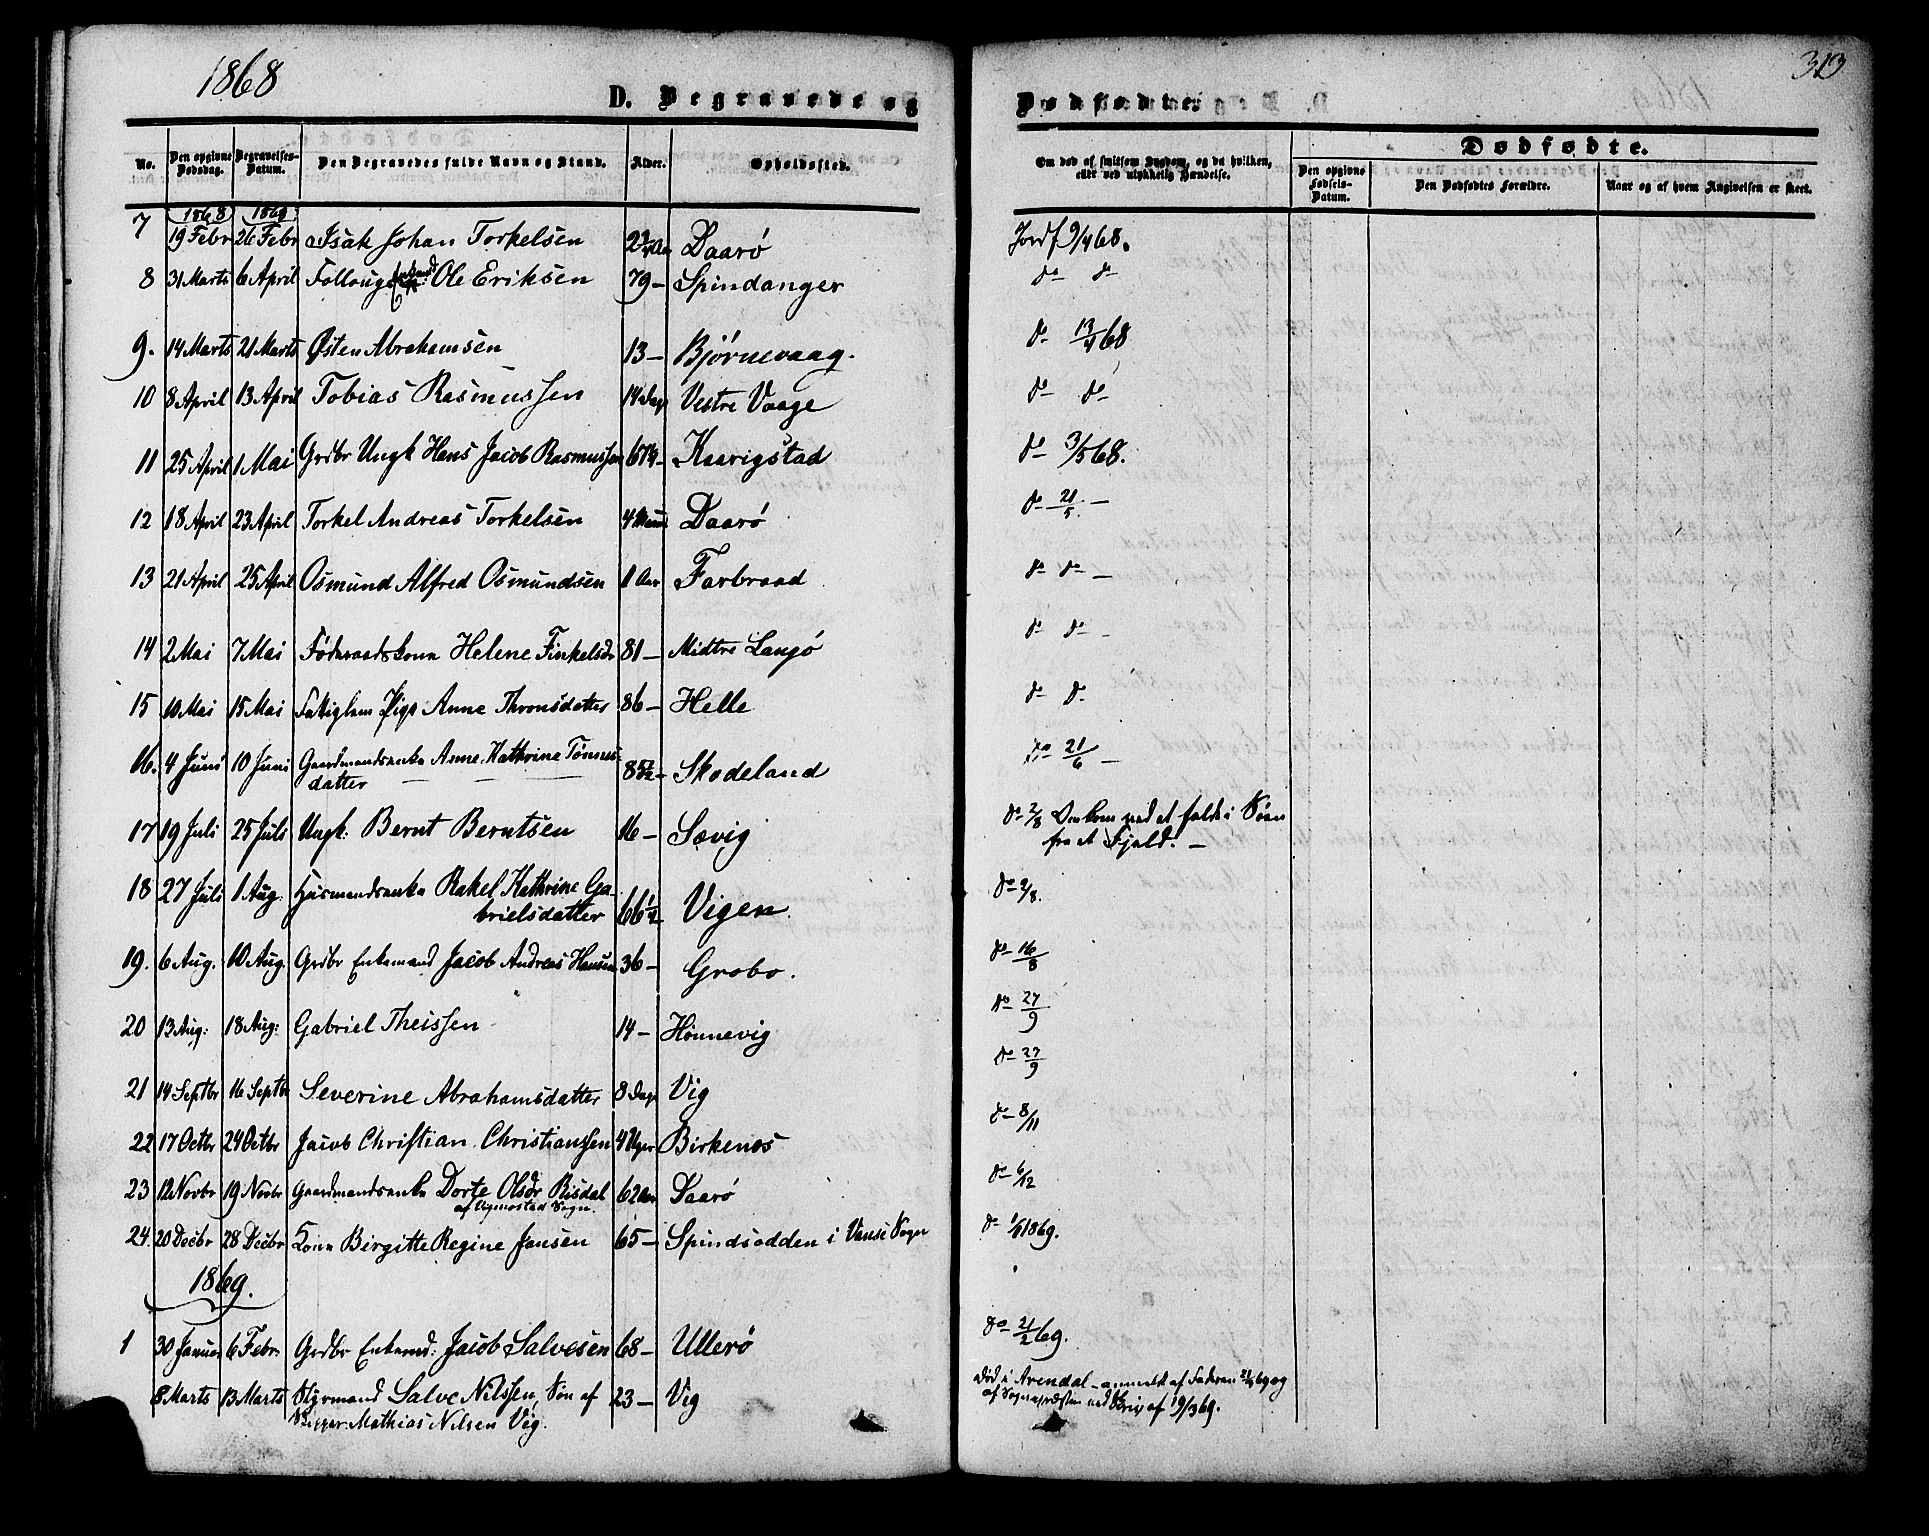 1868
313
D. Begravede og Dødfødte.
No. Den opgivne Dødsdag. Begravelses-Datum. Den Begravedes fulde Navn og Stand. Alder. Opholdssted. Om død af smitsom Sygdom, og da hvilken, eller ved ulykkelig Hændelse. Dødfødte. Den opgivne Fødsels-Datum. Den Dødfødtes Forældre. Naar og af hvem Angivelsen er skeet.
1868
7 19 Febr 26 Febr Isak Johan Torkelsen Daarø Jordf 9/4 68.
8 31 Marts 6 April Ole Eriksen 79 – Spindanger do do
9. 14 Marts 21 Marts Østen Abrahamsen 13 – Bjørnevaag. do 13/4 68
10 8 April 13 April Tobias Rasmussen 14 Dage Vestre Vaage do do
11 25 April 1 Mai Grdbr Ungk Hans Jacob Rasmussen Kaarigstad do 3/5 68.
12 18 April 23 April Torkel Andreas Torkelsen 4 Daarø do 21/5 –
13 21 April 25 April Osmund Alfred Osmundsen 1 Aar Farbraad do do –
14 2 Mai 7 Mai Føderaadskona Helene Finkelsdr 81 – Midtre Langø do do –
15 10 Mai 15 Mai Fattiglem Pige Anne Thronsdatter 86 – Helle do do
16. 4 Juni 10 Juni Gaardmandsenke Anne Kathrine Tønnes-
datter 85½ – Skodeland do 21/6 –
17 19 Juli 25 Juli Ungk: Bernt Berntsen 16 – Sævig do 2/8 Omkom ved at falde i Søen
fra et Fjeld. –
18 27 Juli 1 Aug: Husmandsenke Rakel Kathrine Ga-
brielsdatter Vigen. do 2/8.
19. 6 Aug. 10 Aug. Grdbr Enkemand Jacob Andreas Hansen 36 – Grobo. do 16/8
20 13 Aug: 18 Aug: Gabriel Theissen 14 – Hønnevig do 27/9
21 14 Septbr 16 Septbr Severine Abrahamsdatter 8 Dage Vig do 27/9
22 17 Octbr 24 Octbr Jacob Christian Christianssen 4 Uger Birkenæs do 8/11
23 12 Novbr 19 Novbr Gaardmandsenke Dorte Olsdr Risdal 62 Aar Daarø do 6/12
af Undmostad Sogn.
24. 20 Decbr 28 Decbr Kona Birgitte Regine Jansen 65 – Spindsodden i Vanse Sogn do 1/1 1869.
1869.
1 30 Januar 6 Febr: Grdbr Enkemd: Jacob Salvesen 68 – Ullerø do 21/2 69.
8 Marts 13 Marts Styrmand Salve Nilssen, Søn af 23 – Vig Død i Arendal – anmeldt af Faderen og
Skipper Mathias Nilsen Vig. af Sognepræsten ved Skriv. af 19/3 69.